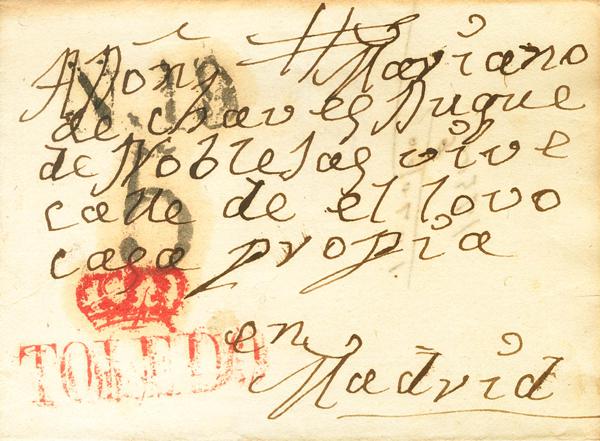 A Don Mariano
de chaves Duque
de Noblesas vive
calle de el lovo
casa propia
en
Madrid
5
TOLEDO